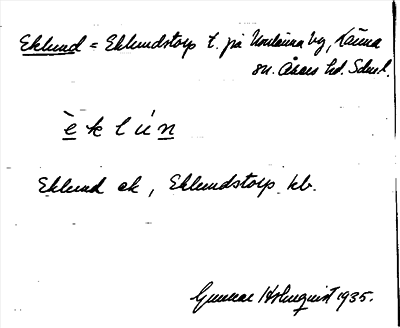 Eklund = Eklundstorp t. på Norulänna bg, Tåäna
sn. Åkers hd. Sdml.
è k l ú n
Eklund ek, Eklundstorp kb.
Gunnar Holmquist 1935.